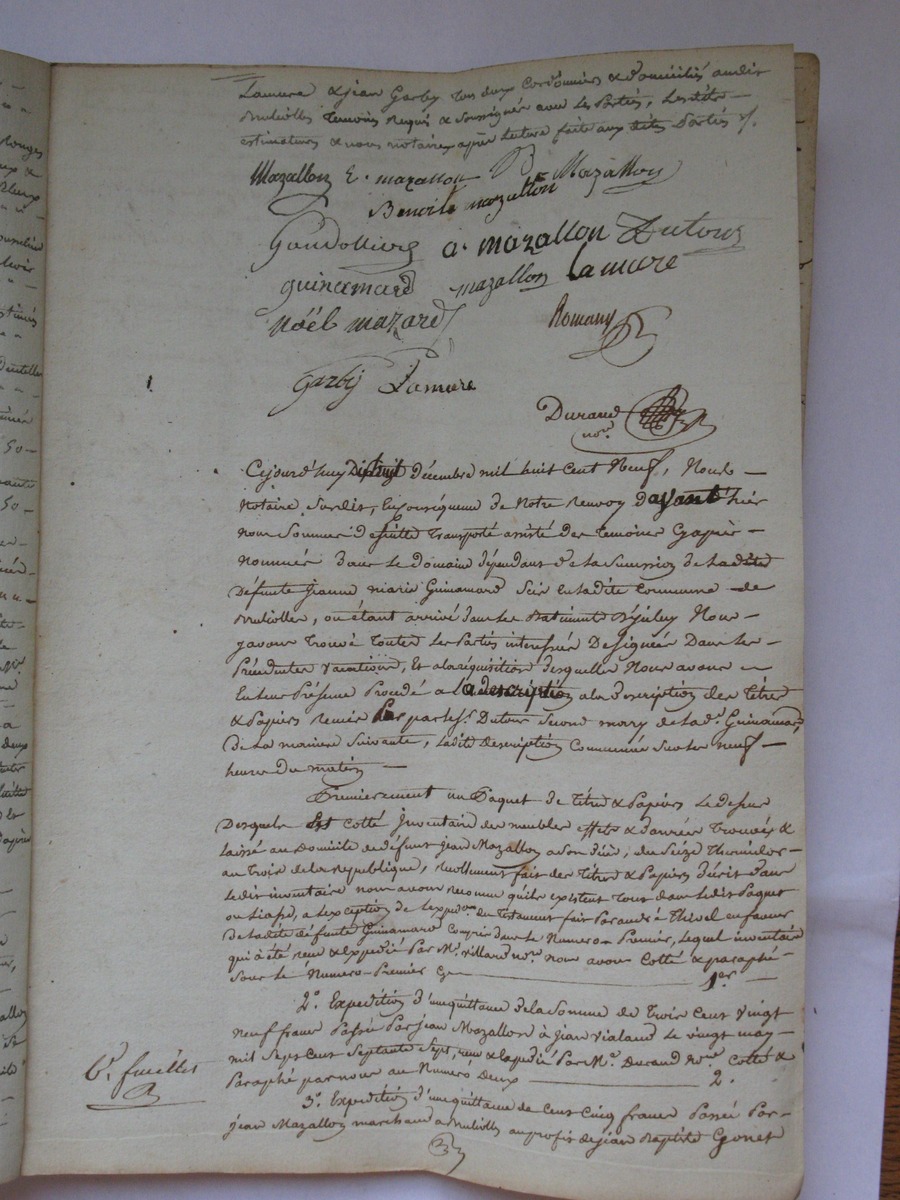 Lamure & jean Garby tous deux cordonniers & domiciliés audit
Brulliolles temoins requis & soussignés avec les parties, lesdits
estimateurs & nous notaire après lecture faite aux dites Parties
Mazallon E. mazallon B Mazallon
Benoite mazallon
Gaudollière a. mazallon Dutour
guinamard mazallon Lamure
Noël mazard Romany
Garby Lamure
Durand
no.re
Cejourd'huy Dixhuit décembre mil huit cent Neuf, Nous
Notaire Susdit, En conséquence de Notre Renvoy Davant hier
nous Sommes de suitte transporté assisté des temoins cy après
nommés dans le Domaine dépendant de la Succession de ladite
défunte Jeanne marie Guinamard Scis en ladite commune de
Brulliolles, ou étant arrivé dans les Batiments d'yceluy Nous
y avons trouvé toutes les Parties interessées Designées Dans les
Précédentes vacations, Et a la réquisition desquelles Nous avons
En leur Présence Procédé a la description a la description des titres
& Papiers remis Par par le sr. Dutour Second mary de lad.e Guinamard
de la maniere Suivante, ladite description commencée sur les neuf
heures du matin
Premierement un Paquet de titres & Papiers le dessus
desquels est cotté Inventaire des meubles effets & danrées trouvés &
laissé au Domicile de défunt jean Mazallon a son décès, du Seize thermidor
an trois de la republique, recollement fait des titres & Papiers décrit dans
ledit inventaire nous avons reconnu qu'ils existent tous dans ledit Paquet
ou liasse, a l'exception de l'expedon. du Testament fait Par andré Thivel en faveur
de ladite défunte Guinamard compris dans le Numero Premier, lequel inventaire
qui a été reçu & expedié Par Me. villard nore. nous avons cotté & paraphé
sous le Numero Premier cy 1er
2º. Expedition d'une quittance de la Somme de trois cent vingt
neuf francs Passée Par jean Mazallon à jean vialand le vingt may
mil sept cent septante sept, reçu & expedié Par Me. Durand nore. cotté &
Paraphé par nous au Numero deux 2.
6e. fueillet
3º. Expedition d'une quittance de cent cinq francs Passée Par
jean Mazallon marchand a Brulliolles au profit de jean Baptiste Gonet